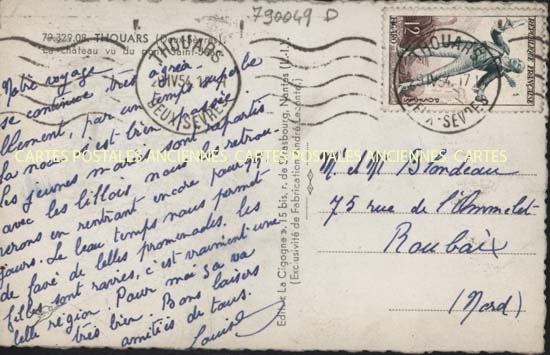 790049 D
79.329.08. THOUARS (Deux-Sèvres)
Le château vu du pont Saint-Jean
THOUARS
IV54
DEUX SEVRES
12F
POSTES
REPUBLIQUE FRANÇAISE
THOUARS
DEUX-SEVRES
Notre voyage
se continue très agréa
blement, par un temps superbe
la noce s'est bien passée
les jeunes mariés sont repartis
avec les lillois, nous les retrou-
verons en rentrant encore pour qq
jours. Le beau temps nous permet
de faire de belles promenades, les
filles sont ravies, c'est vraiment une
belle région. Pour moi ça va
très bien. Bons baisers
amitiés de tous.
Louise
CARTES POSTALES ANCIENNES CARTES POSTALES ANCIENNES CARTES
Edit. La Cigogne, 15 bis, r. de Strasbourg, Nantes (L.-I.)
(Exclusivité de Fabrication André Leconte)
M. et Mme Blondeau
75 rue de l'Ommelet
Roubaix
(Nord)